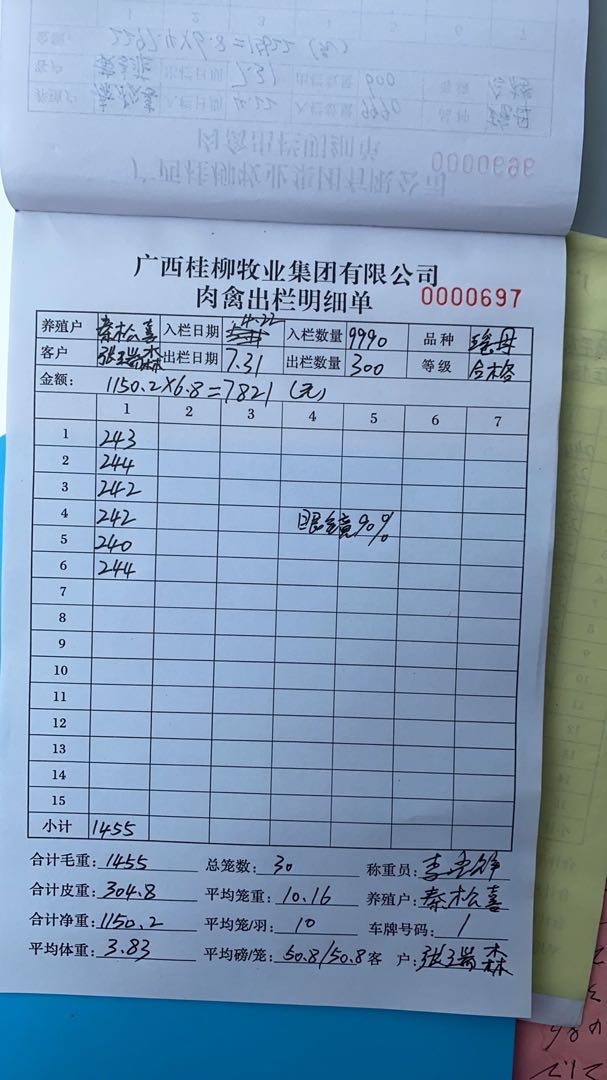 广西桂柳牧业集团有限公司
肉禽出栏明细单
0000697
养殖户 秦松喜 入栏日期 4.22 入栏数量 9990 品种 瑶母
客户 张瑞森 出栏日期 7.31 出栏数量 300 等级 合格
金额: 1150.2×6.8=7821 (元)
1 2 3 4 5 6 7
1 243
2 244
3 242
4 242 眼镜90%
5 240
6 244
7
8
9
10
11
12
13
14
15
小计 1455
合计毛重: 1455 总笼数: 30 称重员: 李
合计皮重: 304.8 平均笼重: 10.16 养殖户: 秦松喜
合计净重: 1150.2 平均笼/羽: 10 车牌号码: 1
平均体重: 3.83 平均磅/笼: 50.8/50.8 客 户: 张瑞森